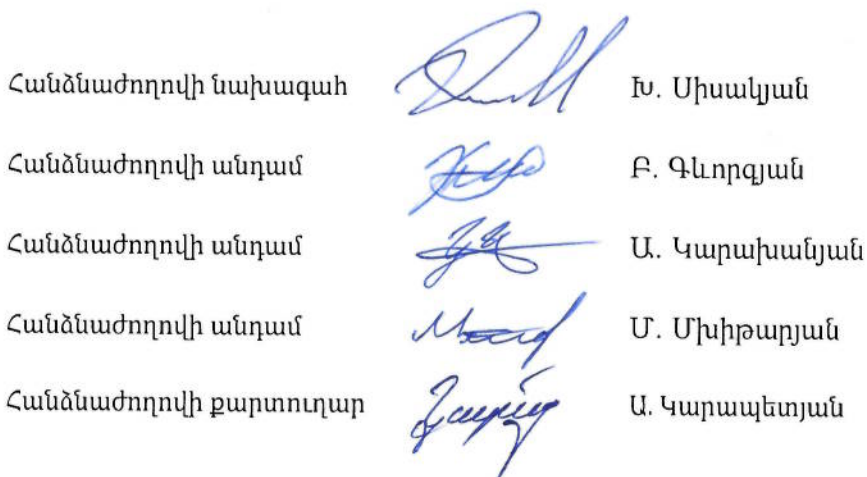 Հանձնաժողովի նախագահ Խ. Սիսակյան
Հանձնաժողովի անդամ Բ. Գևորգյան
Հանձնաժողովի անդամ Ա. Կարախանյան
Հանձնաժողովի անդամ Մ. Մխիթարյան
Հանձնաժողովի քարտուղար Ա. Կարապետյան